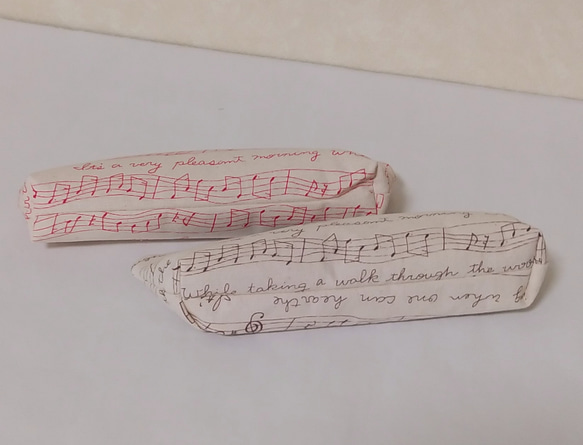 It's a very pleasant morning
very pleasant morning
taking a walk through the
when one can hear the